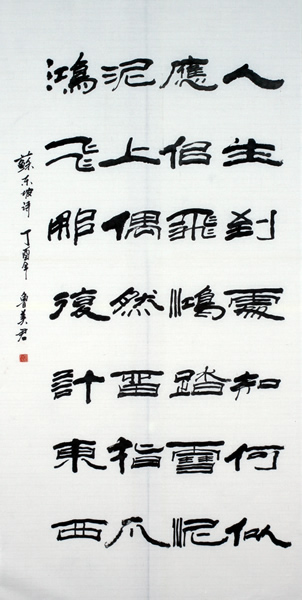 人生到處知何似
應佀飛鴻踏雪泥
泥上偶然留指爪
鴻飛那復計東西
蘇东坡诗 丁酉年 魯美君